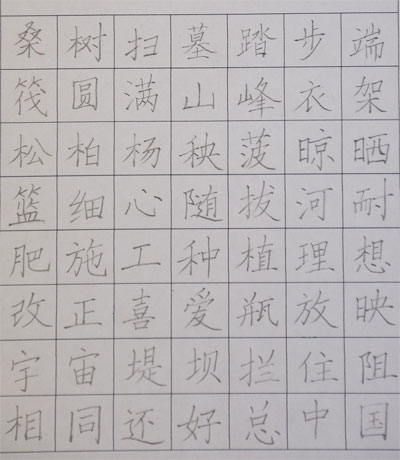 桑树扫墓踏步端
筏圆满山峰衣架
松柏杨秧菠晾晒
篮细心随拔河耐
肥施工种植理想
改正喜爱瓶放映
宇宙堤坝拦住阻
相同还好总中国